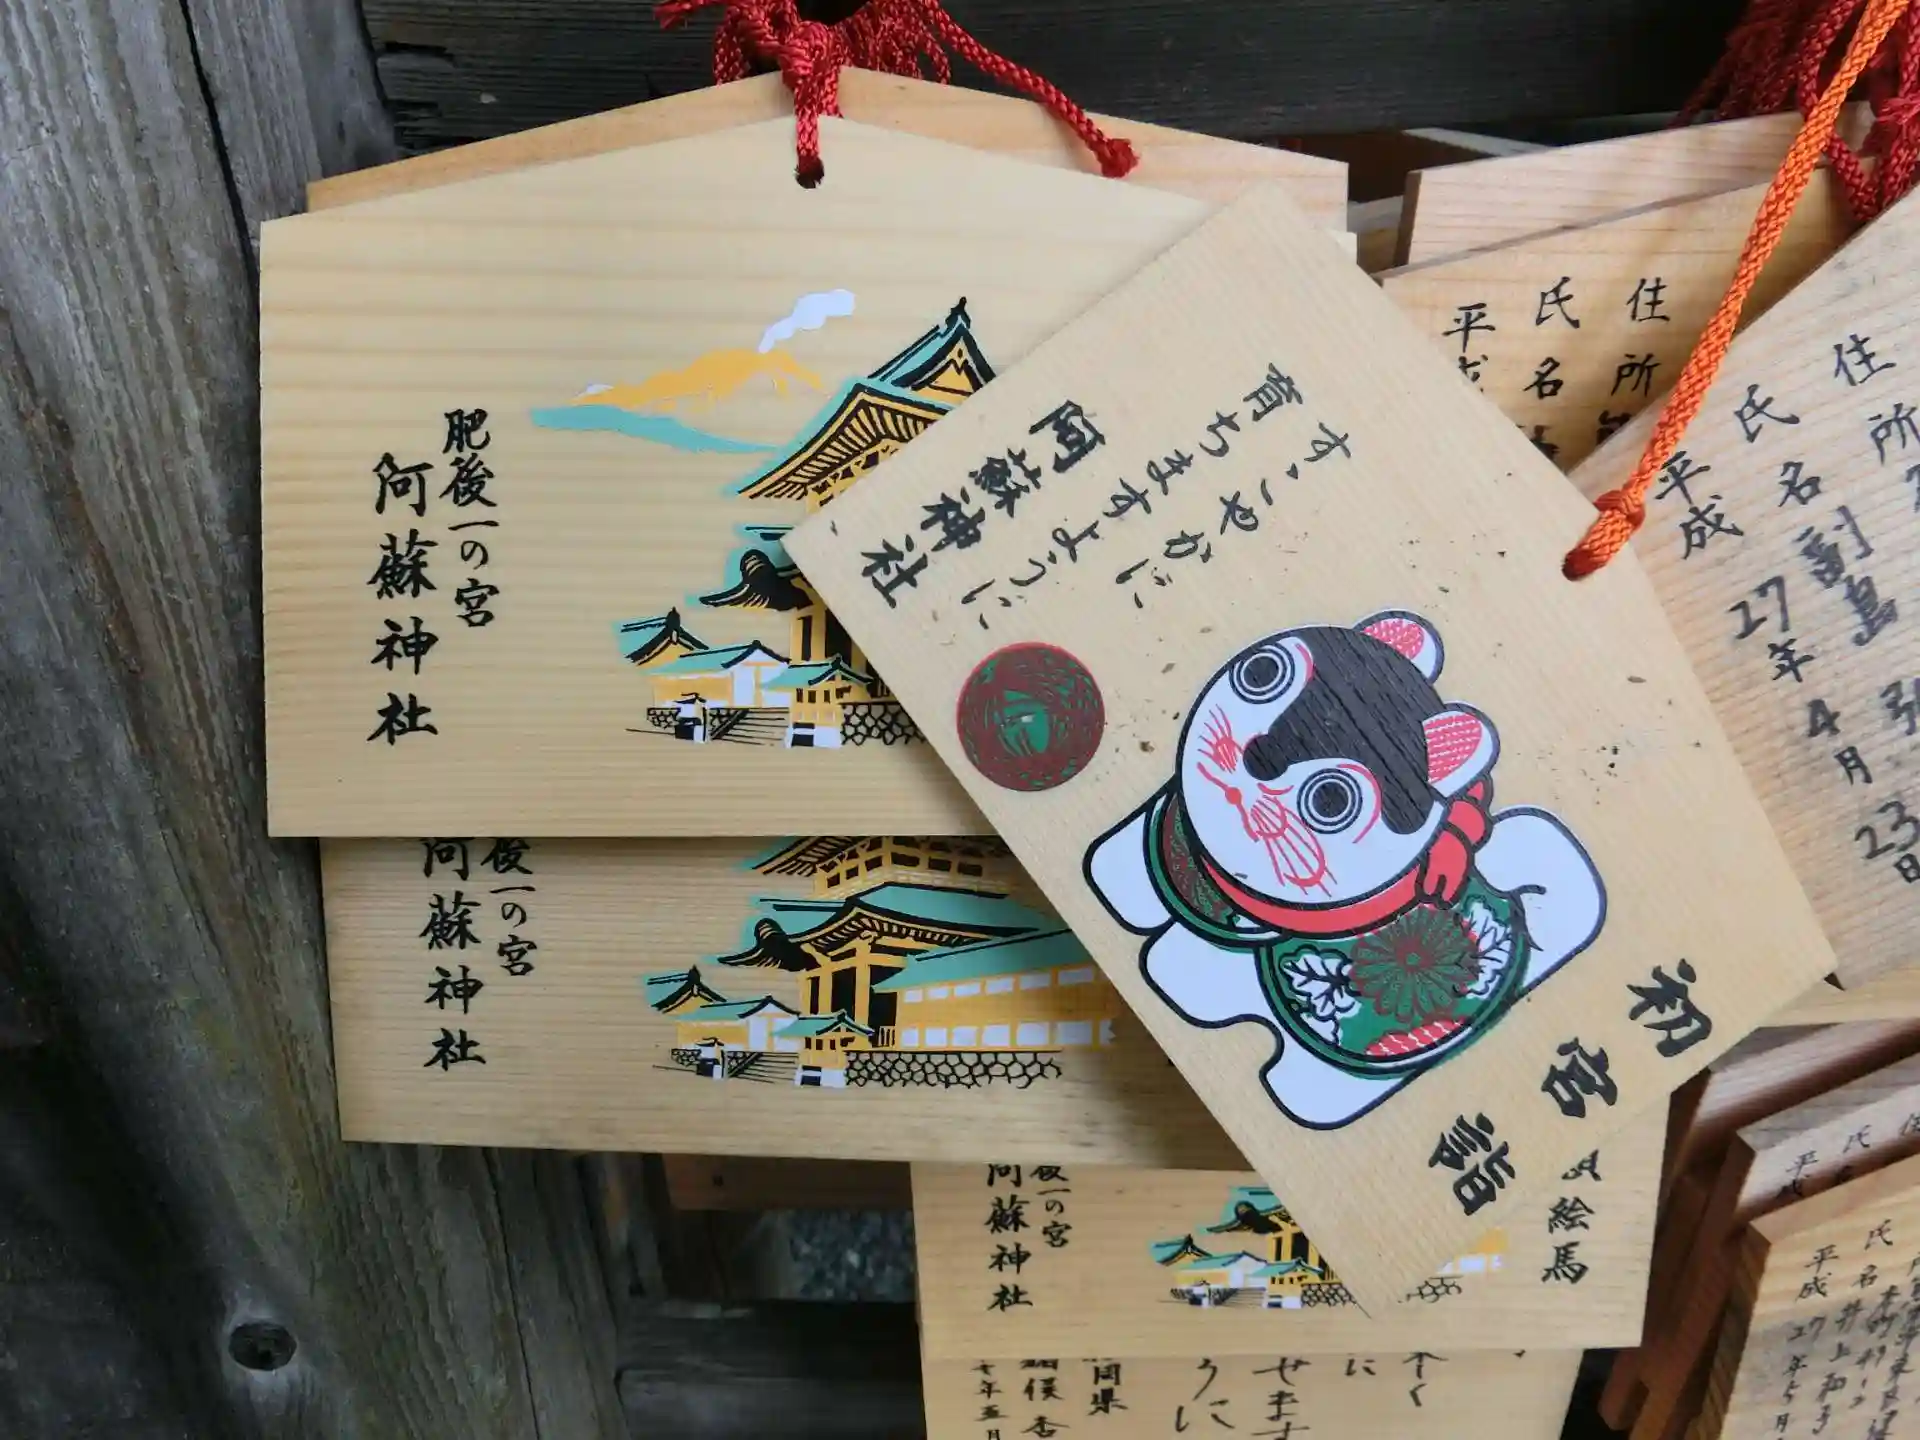 肥後一の宮
阿蘇神社
すこやかに
育ちますように
阿蘇神社
初宮詣
後一の宮
阿蘇神社
後一の宮
阿蘇神社
絵馬
住所
氏名
平成
住所
氏名 副島 弘
平成27年4月23日
住
氏
平成
氏名 井上
平成27年5月
岡県
うに
せます
に
年五月